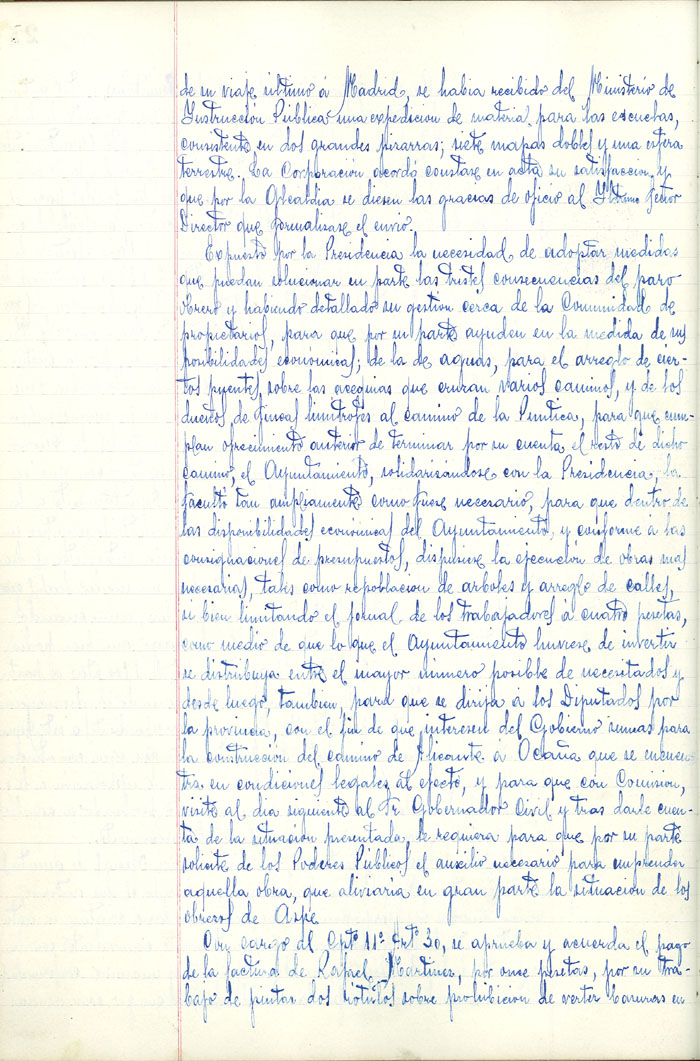 de su viaje ultimo á Madrid, se habia recibido del Ministerio de
Instrucción Pública una expedicion de material para las escuelas,
consistente en dos grandes pizarras; siete mapas dobles y una esfera
terrestre. La Corporación acordó constase en acta su satisfaccion y
que por la Alcaldia se diesen las gracias de oficio al Iltmo Señor
Director que formalizase el envio.
Expuesto por la Presidencia la necesidad de adoptar medidas
que puedan solucionar en parte las tristes consecuencias del paro
obrero y habiendo detallado su gestion cerca de la Comunidad de
propietarios, para que por su parte ayuden en la medida de sus
posibilidades económicas; de la de aguas, para el arreglo de cier-
tos puentes sobre las acequias que cruzan varios caminos, y de los
dueños de fincas limitrofes al camino de la , para que cum-
plan ofrecimiento anterior de terminar por su cuenta el resto de dicho
camino; el Ayuntamiento, solidarizandose con la Presidencia, la
facultó tan ampliamente como fuese necesario, para que dentro de
las disponibilidades económicas del Ayuntamiento, y conforme a las
consignaciones de presupuestos, dispusiese la ejecución de obras mas
necesarias, tales como repoblacion de arboles y arreglo de calles,
si bien limitando el jornal de los trabajadores á cuatro pesetas,
como medio de que lo que el Ayuntamiento hubiese de invertir
se distribuya entre el mayor número posible de necesitados y
desde luego, tambien, para que se dirija á los Diputados por
la provincia, con el fin de que interesen del Gobierno sumas para
la construcción del camino de Alicante á Ocaña que se encuen-
tra en condiciones legales al efecto, y para que con Comision,
visite al dia siguiente al Sr. Gobernador Civil y tras darle cuen-
ta de la situación presentada, le requiera para que por su parte
solicite de los Poderes Públicos el auxilio necesario para emprender
aquella obra, que aliviaria en gran parte la situacion de los
obreros de Aspe.
Con cargo al Cptº 11º Artº 3o, se aprueba y acuerda el pago
de la factura de Rafael Martinez, por once pesetas, por su tra-
bajo de pintar dos rótulos sobre prohibicion de verter basuras en